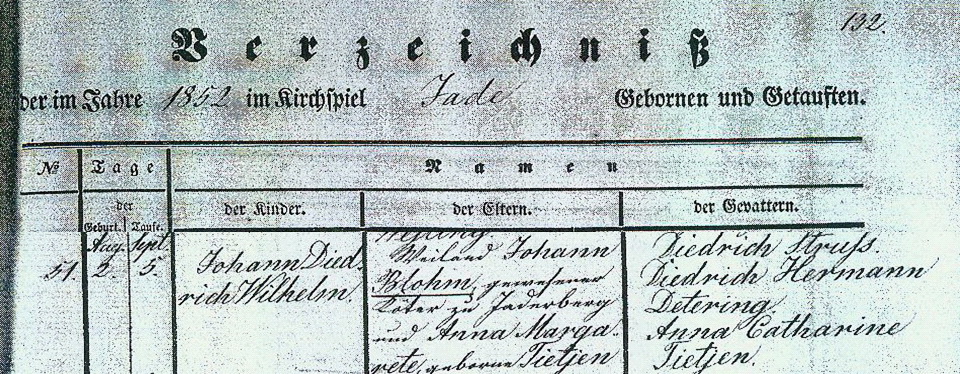 132.
Verzeichniß
der im Jahre 1852 im Kirchspiel Jade Gebornen und Getauften.
№ Tage Namen
der
Geburt. Taufe. der Kinder. der Eltern. der Gevattern.
Aug. Sept.
51. 2. 5.
Johann Died-
rich Wilhelm.
Weiland Johann
Blohm, gewesener
Köter zu Jaderberg
und Anna Marga-
rete, geborne Tietjen
Diedrich Struss.
Diedrich Hermann
Detering.
Anna Catharine
Tietjen.